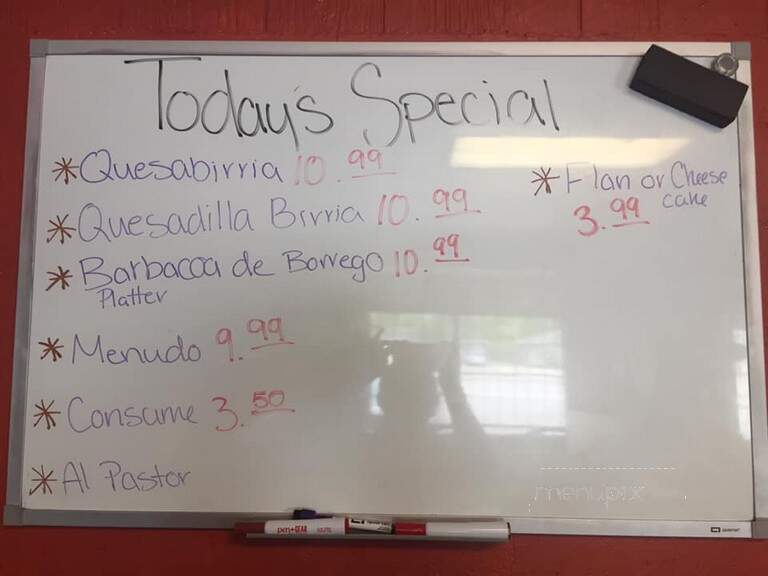 Today's Special
* Quesabirria 10.99
* Quesadilla Birria 10.99
* Barbacoa de Borrego 10.99
Platter
* Menudo 9.99
* Consume 3.50
* Al Pastor
* Flan or Cheese
cake
3.99
menupix
pen+GEAR